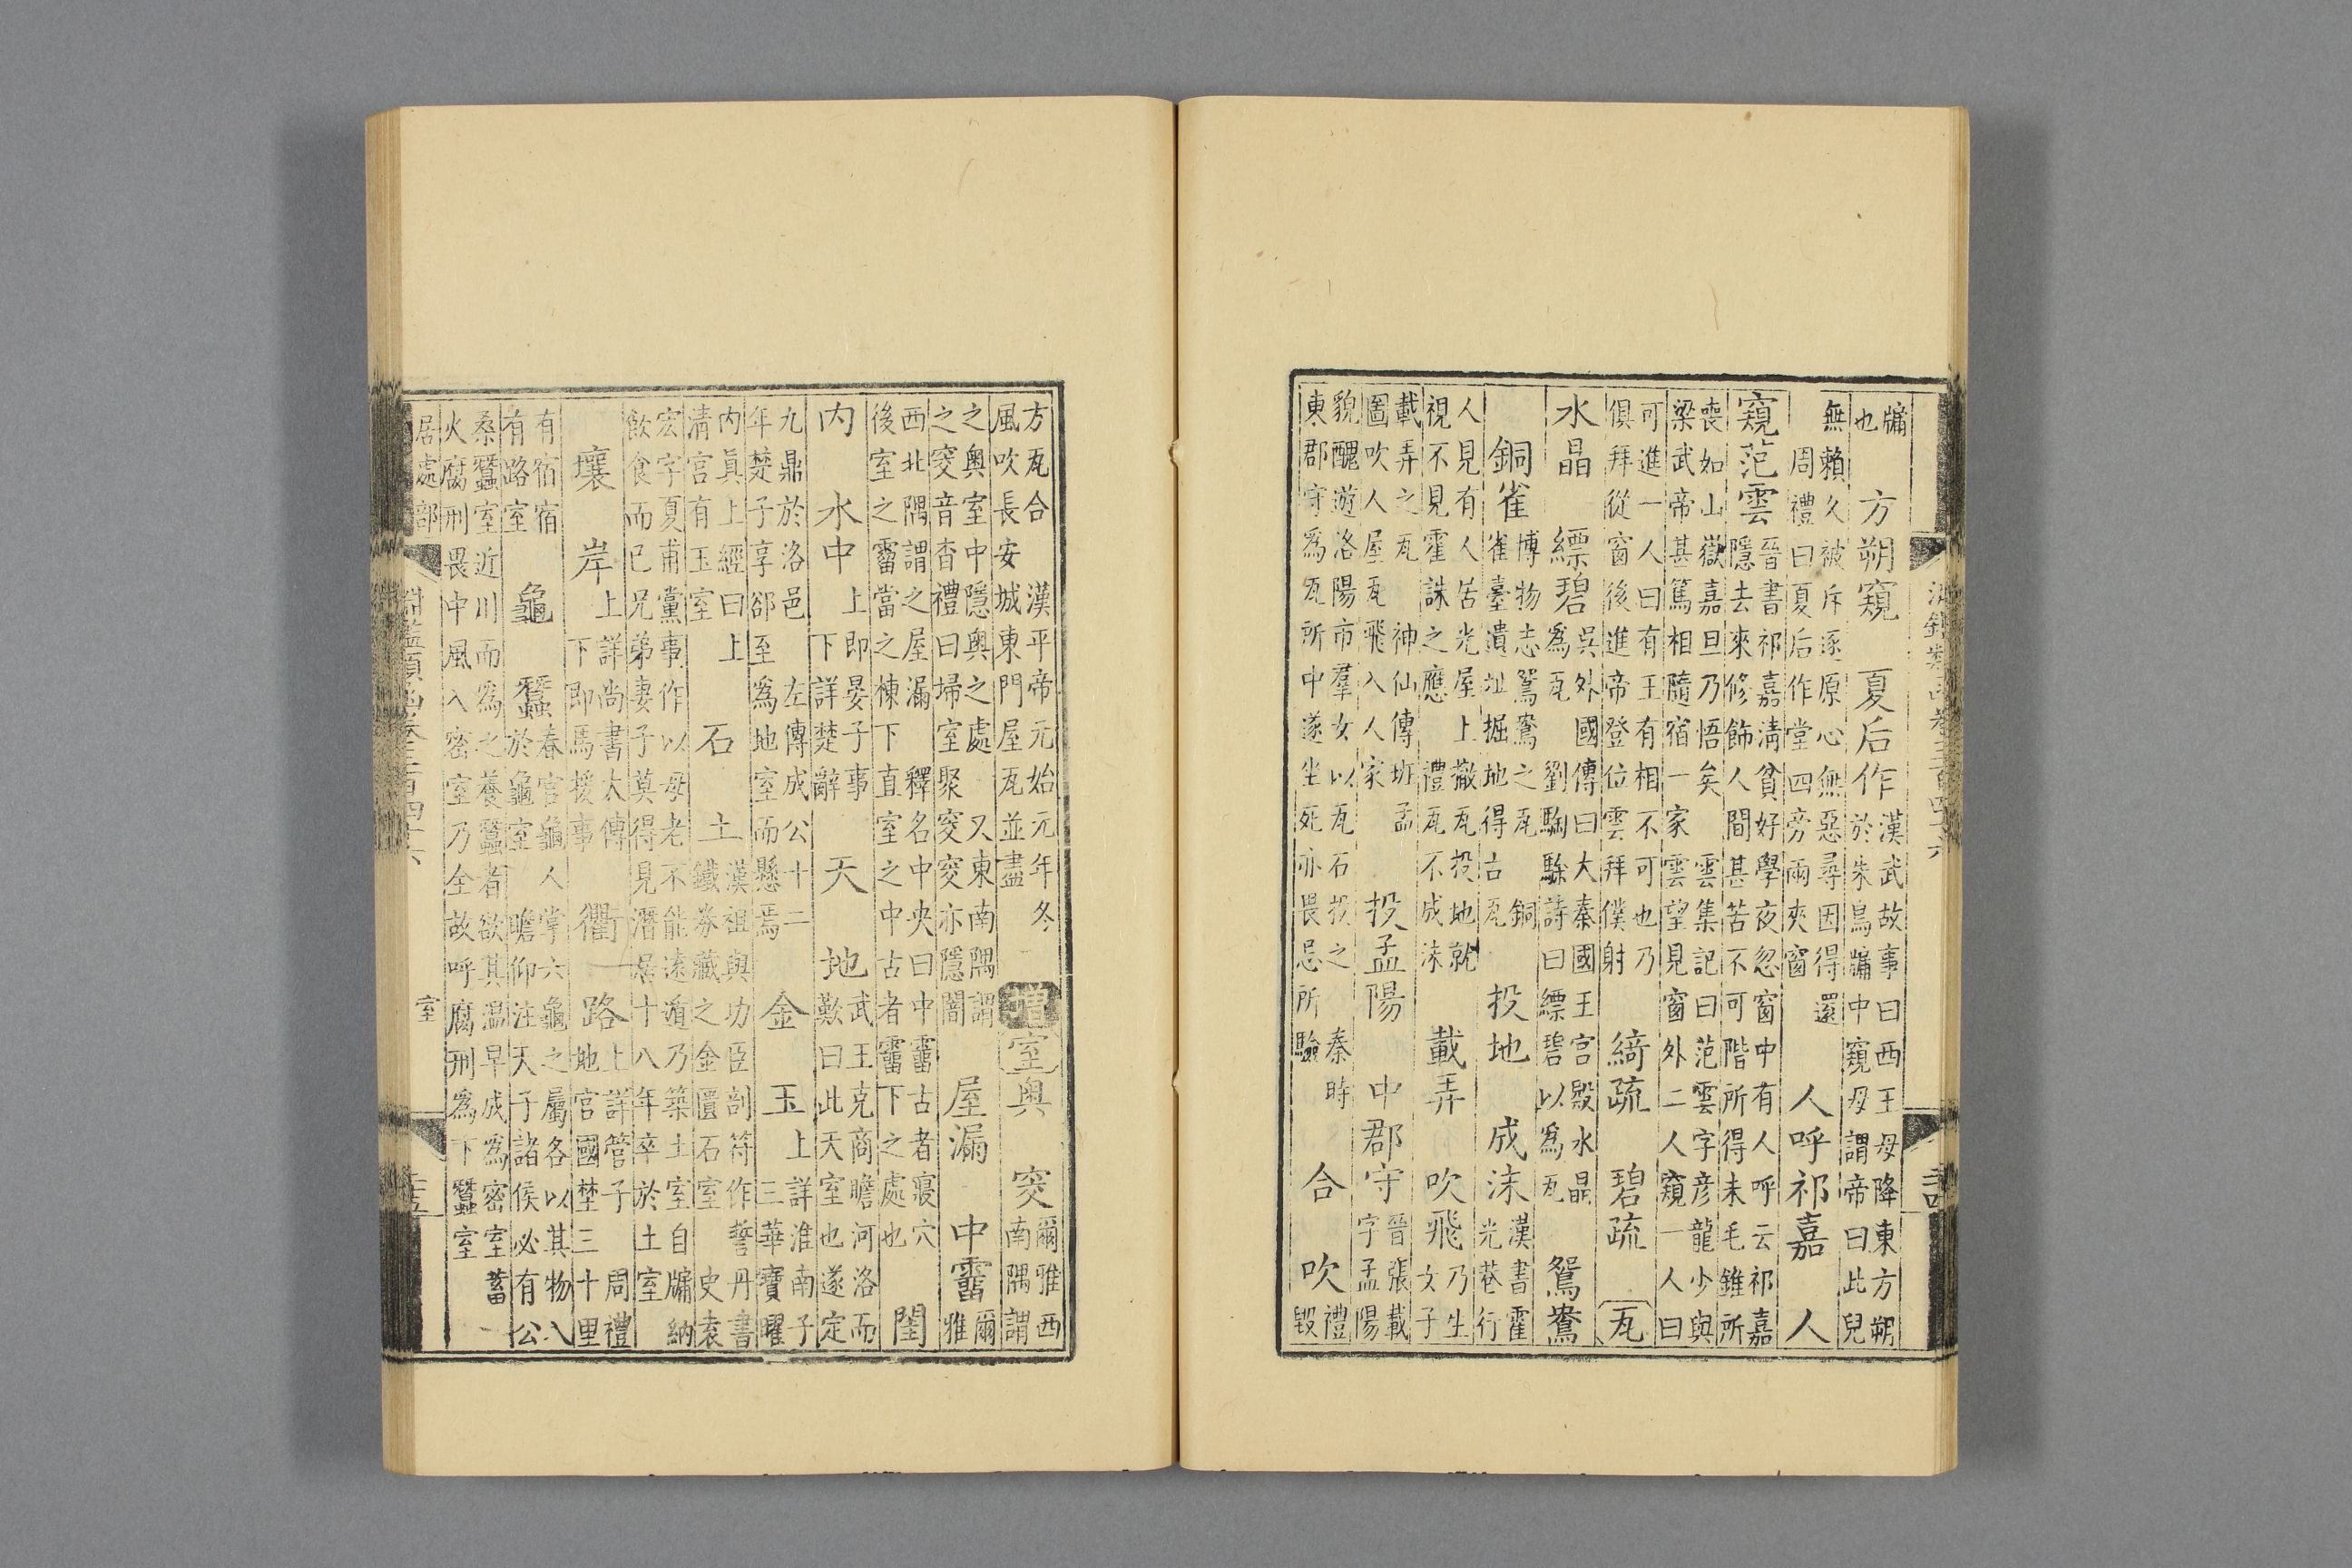 淵鑑類函卷三百四十六
牖也 方朔窺 夏后作 漢武故事曰西王母降東方朔於朱鳥牖中窺母謂帝曰此兒
無賴久被斥逐原心無惡尋因得還周禮曰夏后作堂四旁兩夾窗 人呼祁嘉 人
窺范雲 晉書祁嘉清貧好學夜忽窗中有人呼云祁嘉隱去來修飾人間甚苦不可階所得未毛錐所
喪如山嶽嘉旦乃悟矣 雲集記曰范雲字彥龍少與梁武帝甚篤相隨宿一家雲望見窗外二人窺一人曰
可進一人曰有王有相不可也乃俱拜從窗後進帝登位雲拜僕射 綺疏 碧疏 瓦
水晶 縹碧 吳外國傳曰大秦國王宮殿水晶為瓦 劉騊駼詩曰縹碧以為瓦 鴛鴦
銅雀 博物志鴛鴦之瓦 銅雀臺遺址掘地得古瓦 投地 成沫 漢書霍光巷行
人見有人居光屋上撤瓦投地就視不見霍誅之應 禮瓦不成沫 載弄 吹飛 乃生女子
載弄之瓦 神仙傳班孟圖吹人屋瓦飛入人家 投孟陽 中郡守 晉張載字孟陽
貌醜遊洛陽市羣女以瓦石投之 秦時東郡守為瓦所中遂坐死亦畏忌所驗 合 吹 禮毀
方瓦合 漢平帝元始元年冬風吹長安城東門屋瓦並盡 增 室 奥 窔 爾雅西南隅謂
之奥室中隱奥之處 又東南隅謂之窔音杳禮曰埽室聚窔窔亦隱闇 屋漏 中霤 爾雅
西北隅謂之屋漏 釋名中央曰中霤古者寢穴後室之霤當之棟下直室之中古者霤下之處也 閨
内 水中 上即晏子事下詳楚辭 天 地 武王克商瞻河洛而歎曰此天室也遂定
九鼎於洛邑 左傳成公十二年楚子享郤至為地室而懸焉 金 玉 上詳淮南子三華寶曜
内眞上經曰上清宮有玉室 石 土 漢祖與功臣剖符作誓丹書鐵券藏之金匱石室 史袁
宏字夏甫黨事作以母老不能遠遁乃築土室自牖納飲食而已兄弟妻子莫得見潛居十八年卒於土室
壤 岸 上詳尚書太傳下即馬援事 衢 路 上詳管子 周禮地官國埜三十里
有宿宿有路室 龜 蠶 春官龜人掌六龜之屬各以其物入於龜室 瞻仰注天子諸侯必有公
桑蠶室近川而為之養蠶者欲其温早成為密室蓄火腐刑畏中風入密室乃全故呼腐刑為下蠶室
居處部 室